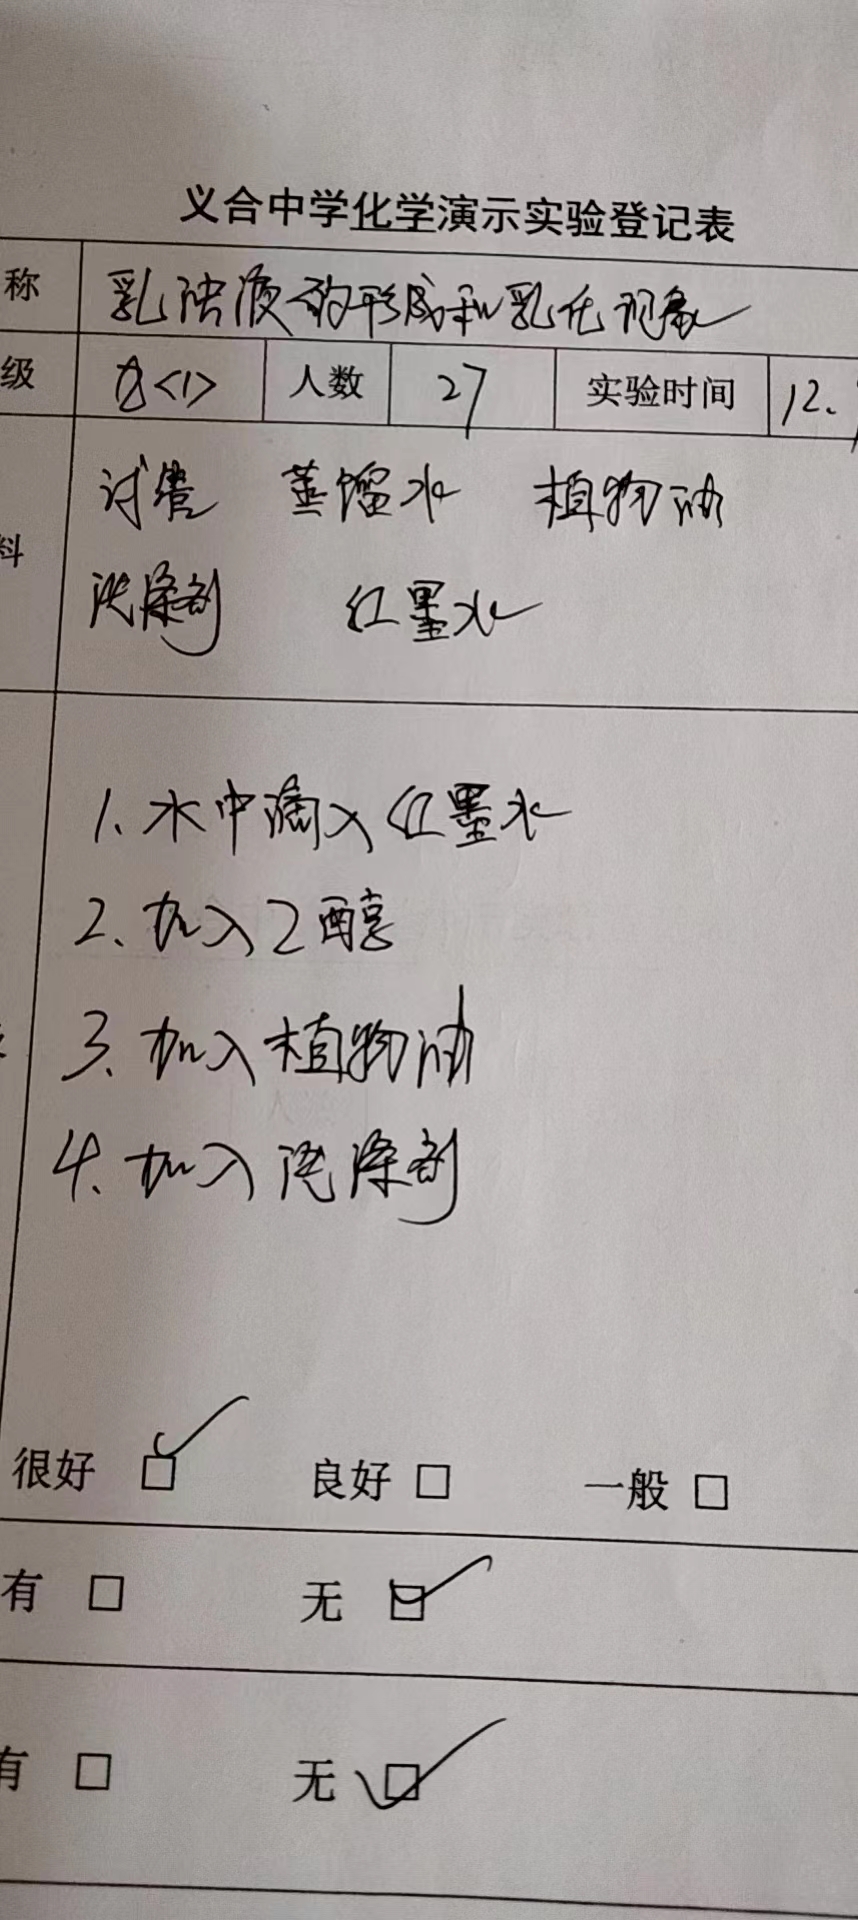 义合中学化学演示实验登记表
称 乳浊液的形成和乳化现象
级 九<1> 人数 27 实验时间 12.
试管 蒸馏水 植物油
料
洗涤剂 红墨水
1. 水中滴入红墨水
2. 加入乙醇
3. 加入植物油
4. 加入洗涤剂
很好 □ 良好 □ 一般 □
有 □ 无 □
有 □ 无 □